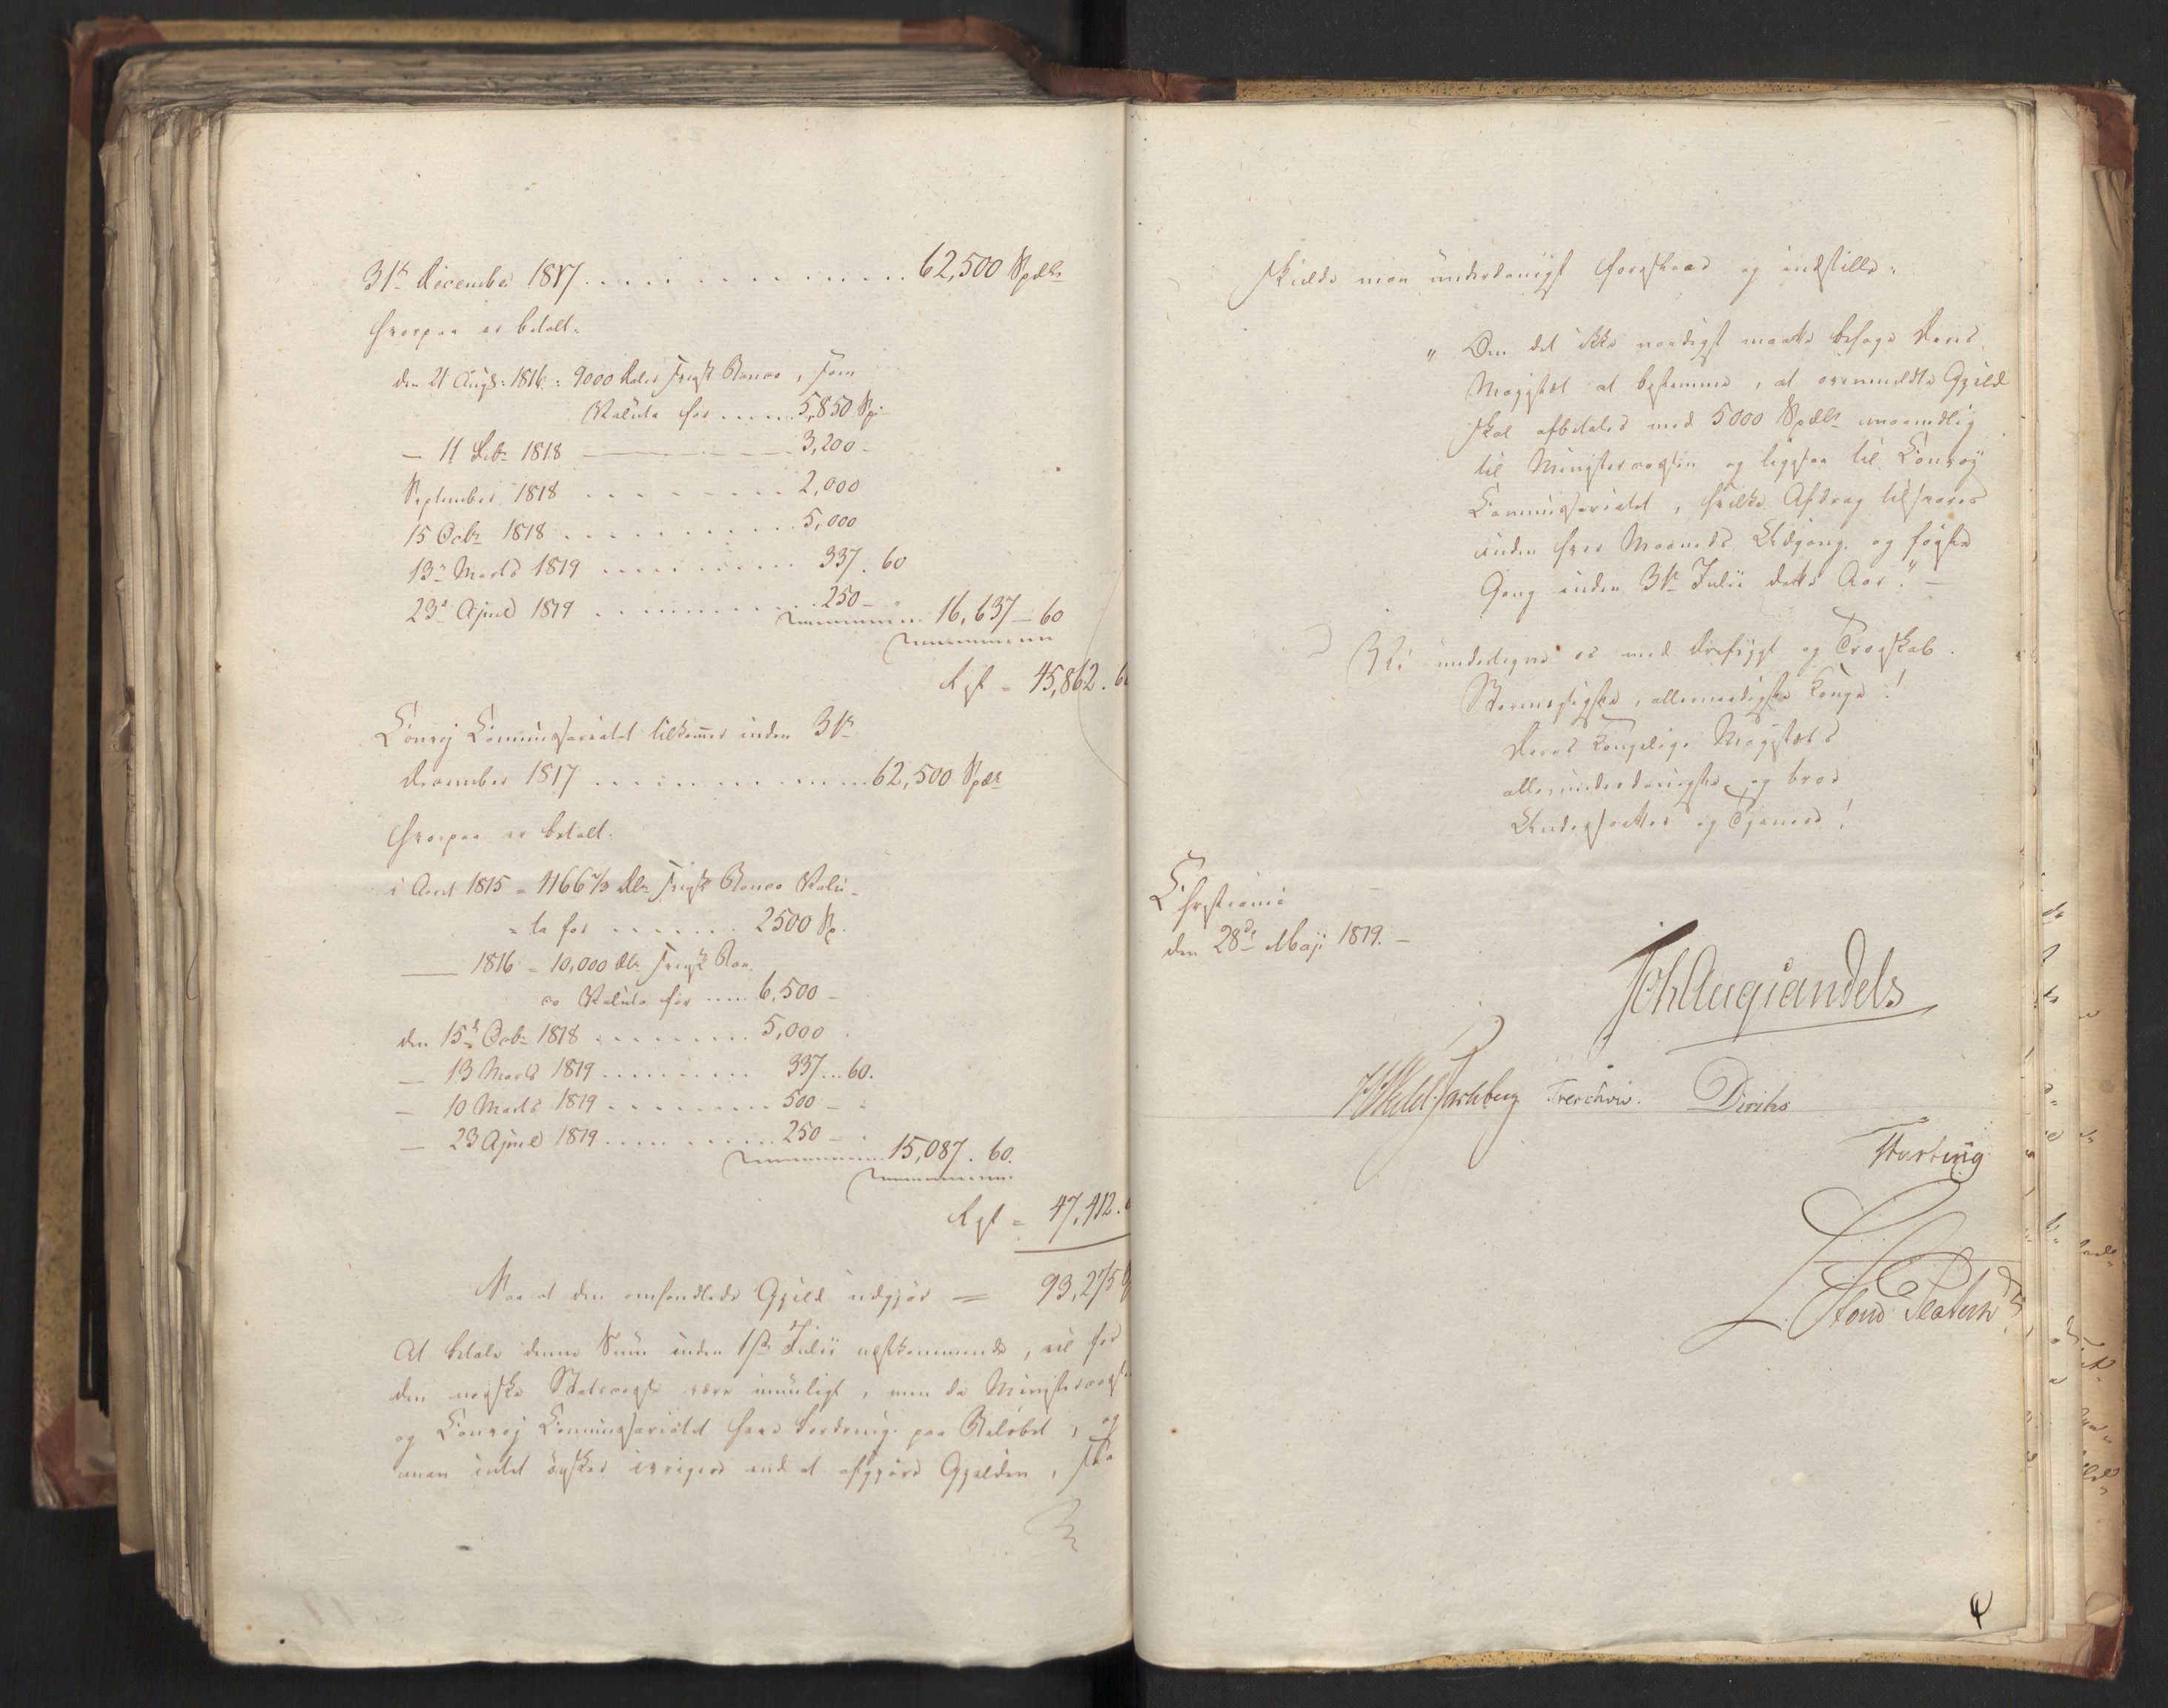 31te December 1817 . . . . . . . . . . . . 62,500 Spdlr
hvorpaa er betalt:
den 21 Augs: 1816: 9000 daler svensk Banco, som
Valuta for . . . . . . 5,850 Sp:
— 11 Febr 1818 — — — — 3,200 -
September 1818 . . . . . . . 2,000
15 Octbr 1818 . . . . . . . . . 5,000
13de Marts 1819 . . . . . . . . . 337. 60
23de April 1819 . . . . . . . . . 250 - "
16,637 — 60
Rest = 45,862. 60
Convoj Commissariatet tilkommer inden 31te
December 1817 . . . . . . . . . . . . 62,500 Spdlr
hvorpaa er betalt.
i Aaret 1815 = 4166 2/3 dlr svensk Banco Valu-
= ta for . . . . . . . 2500 Sp.
— 1816 = 10,000 dlr svensk Ban
co Valuta for . . . . . 6,500 -
den 15de Octbr 1818 . . . . . . . . . 5,000
— 13 Marts 1819 . . . . . . . . . 337 . . . 60.
— 10 Marts 1819 . . . . . . . . . 500 -
— 23 April 1819 . . . . . . . . . 250 -
15,087. 60.
Rest = 47,412.
Saa at den omhandlede Gjeld udgjør = 93,275
At betale denne Sum inden 1ste Julii næstkommende, vil for
den norske Statscasse være umuligt, men da Ministercassen
og Convoj Commissariatet have Fordring paa Beløbet, og
man intet ønsker ivrigere end at afgjøre Gjelden, sku
skulde man underdanigst foreslaae og indstille:
" Om det ikke naadigst maatte behage Deres
Majestæt at bestemme, at ovenmeldte Gjeld
skal afbetales med 5000 Spdlr maanedlig
til Ministercassen og ligesaa til Convoj
Commissariatet, hvilke Afdrag tilsvares
inden hver Maaneds Udgang og første
Gang inden 31te Julii dette Aar." —
Vi undertegne os med Ærefrygt og Troeskab.
Stormægtigste, allernaadigste Konge!
Deres Kongelige Majestæts
allerunderdanigste og troe
Undersaatter og Tjenere!
Christiania
den 28de Maji 1819. —
Joh Aug Sandels
H Wedel Jarlsberg Treschow. Diriks
Hartung
L. Stoud Platou